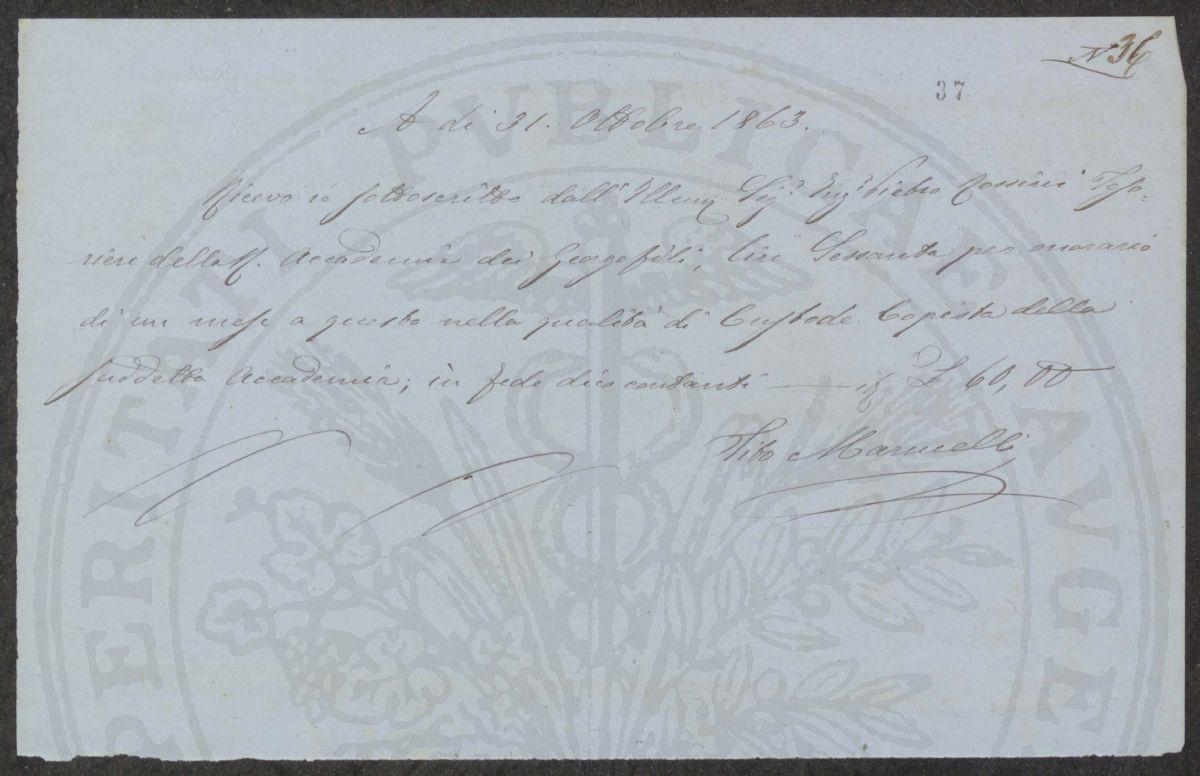 N 36
37
A di 31. Ottobre 1863.
Ricevo io sottoscritto dall' Illmo Sig.r Ing.r Pietro Rossini Teso-
riere della R. Accademia dei Georgofili, lire Sessanta per onorario
di un mese a questo nella qualità di Custode Copista della
suddetta Accademia; in fede dico contanti — £ 60,00
Tito Marucelli
PROSPERITATI PVBLICAE AVGE